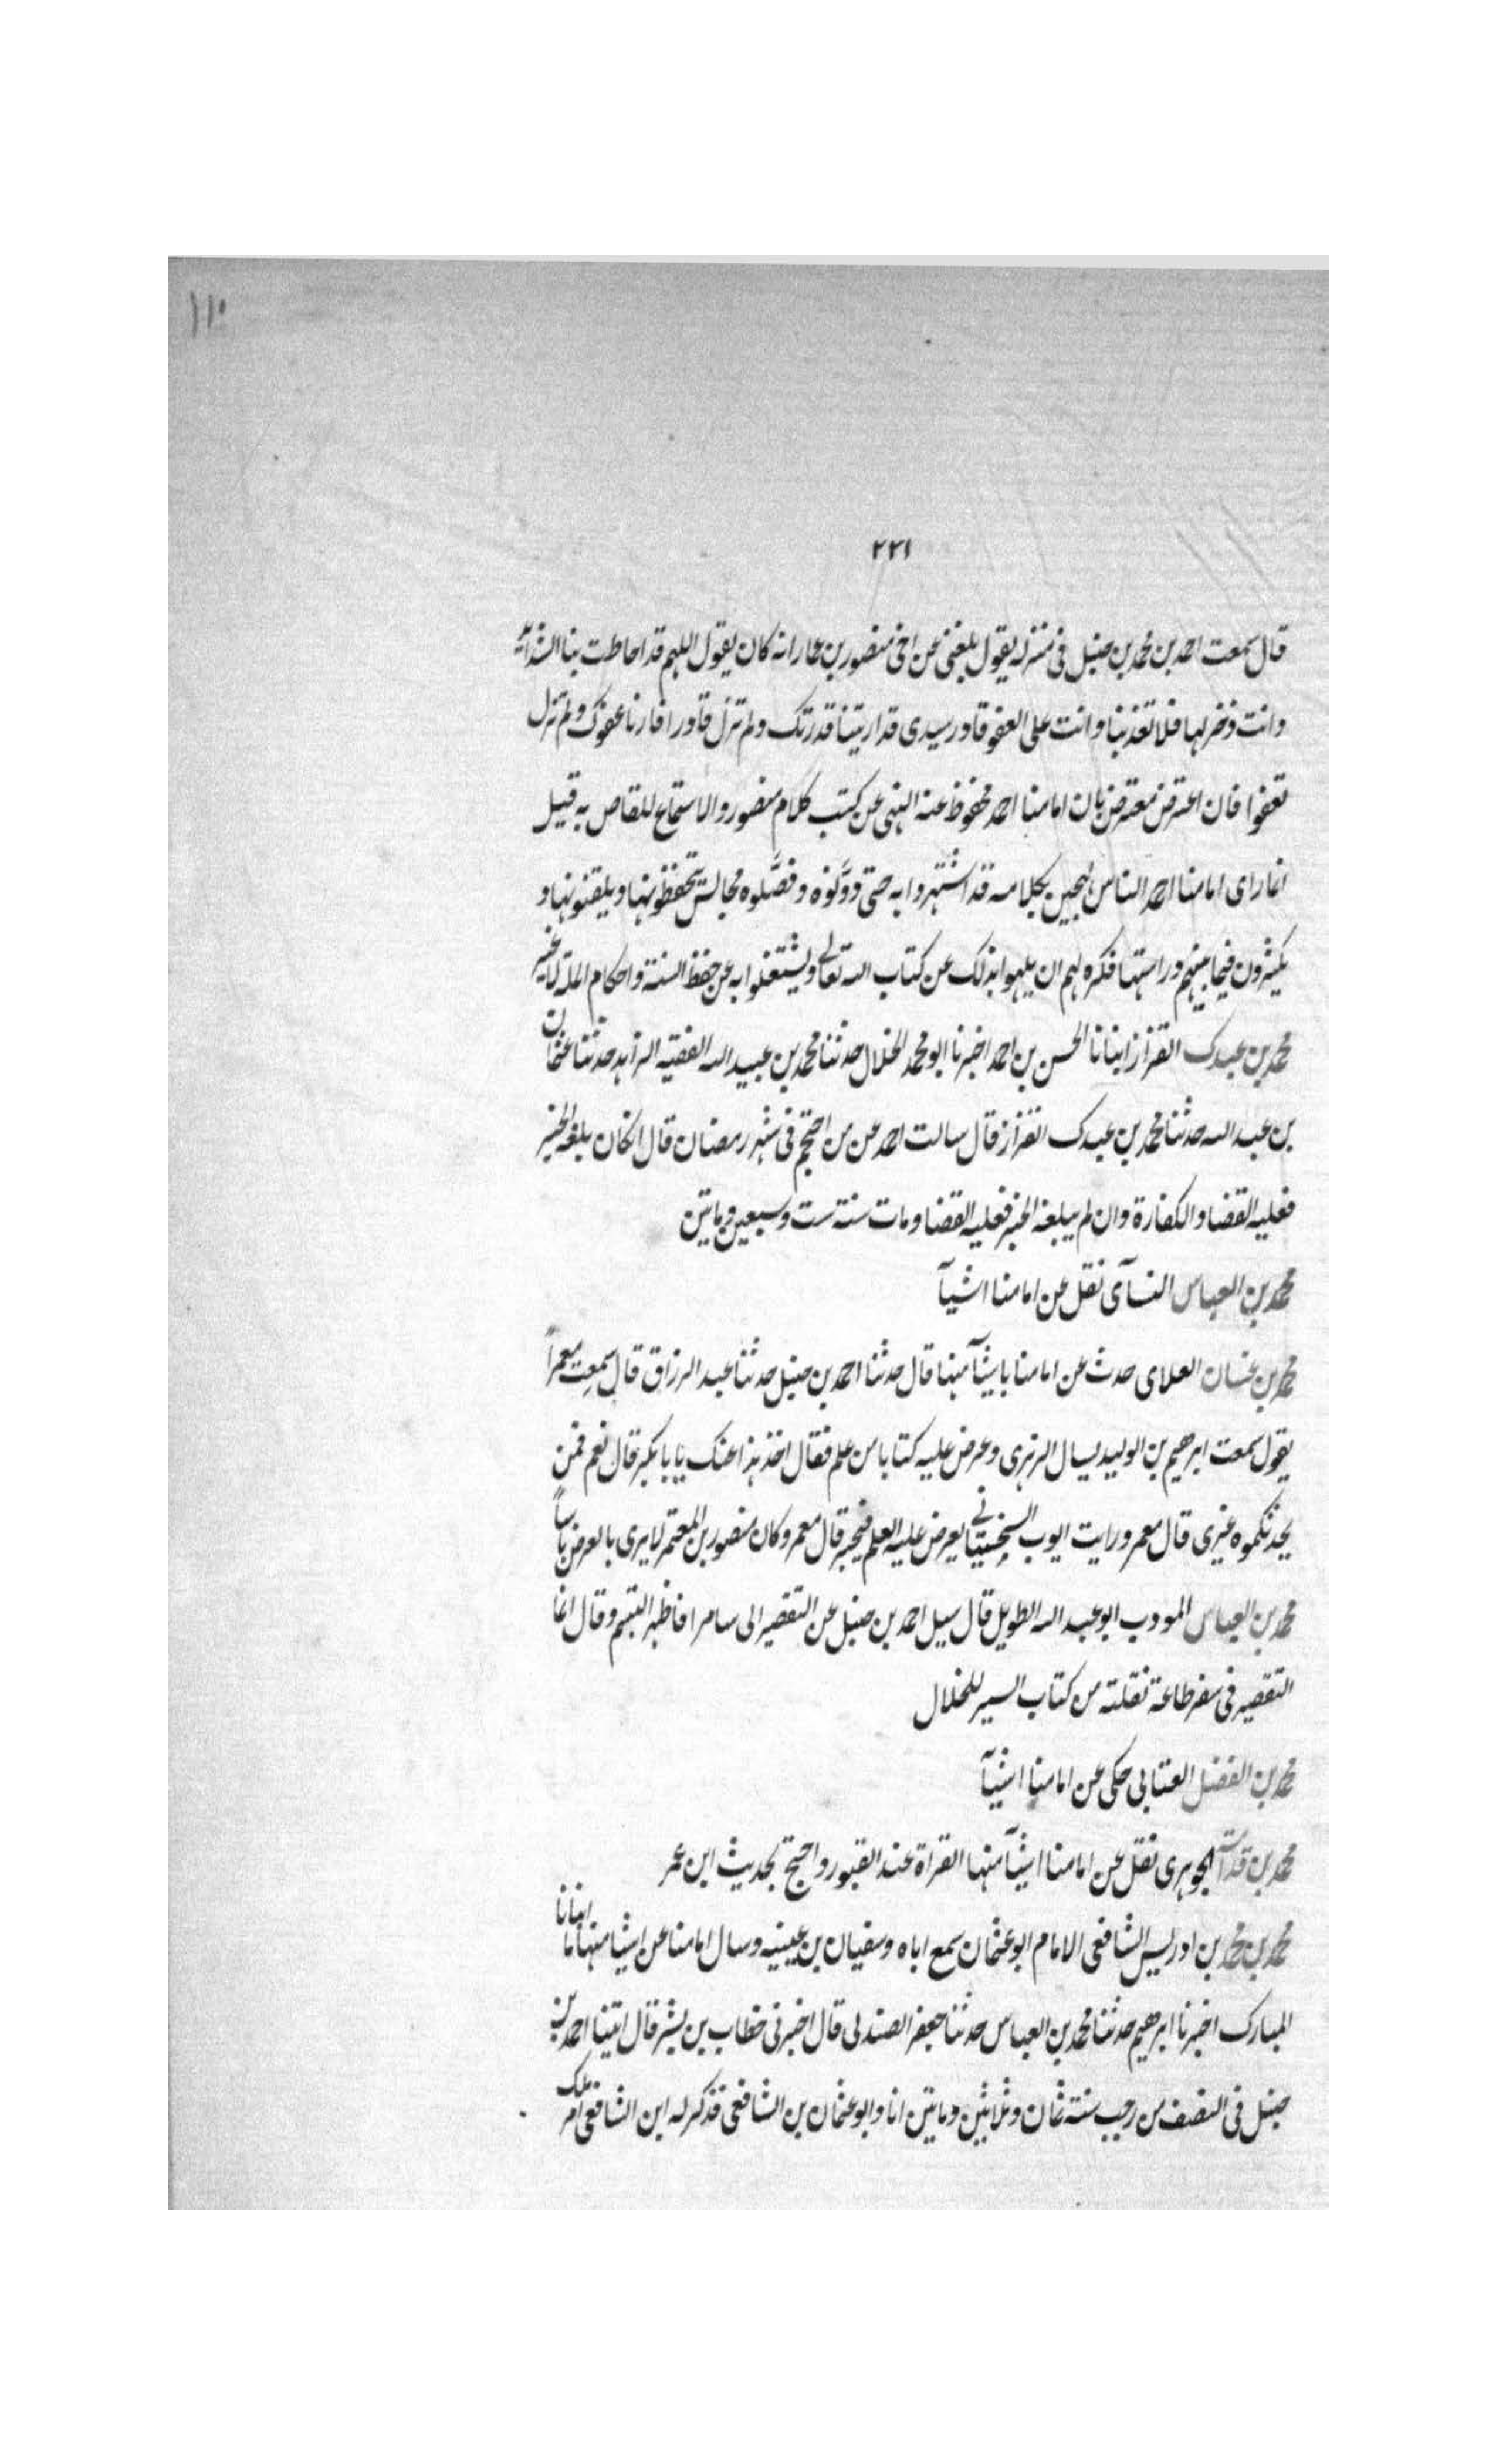 ١١٠
٢٢١
قال سمعت احمد بن محمد بن حنبل فى منزله يقول بلغنى عن اخى منصور بن عمار انه كان يقول اللهم قد احاطت بنا الشدائد
وانت ذخر لها فلا تعذبنا وانت على العفو قادر سيدى قد اريتنا قدرتك ولم تزل قادرا فارنا عفوك ولم تزل
تعفوا فان اعترض معترض بان امامنا احمد محفوظ عنه النهى عن كتب كلام منصور والاستماع للقاص به قيل
انما راى امامنا احمد الناس لهجين بكلامه قد اشتهروا به حتى دوَّنوه وفصَّلوه مجالس يتحفظونها ويلقنونها و
يكثرون فيما بينهم دراستها فكره لهم ان يلهوا بذلك عن كتاب الله تعالى ويشتغلوا به عن حفظ السنة واحكام الملة لا غير
محمد بن عبدك القزاز انبانا الحسن بن احمد اخبرنا ابو محمد الخلال حدثنا محمد بن عبيد الله الفقيه الزاهد حدثنا عثمان
بن عبد الله حدثنا محمد بن عبدك القزاز قال سالت احمد عن من احتجم فى شهر رمضان قال ان كان بلغه الخبر
فعليه القضا والكفارة وان لم يبلغه الخبر فعليه القضا ومات سنة ست وسبعين وماتين
محمد بن العباس النسآى نقل عن امامنا اشيآ
محمد بن غسان العلاى حدث عن امامنا باشيآ منها قال حدثنا احمد بن حنبل حدثنا عبد الرزاق قال سمعت معمراً
يقول سمعت ابرهيم بن الوليد يسال الزهرى وعرض عليه كتابا من علم فقال احدث هذا عنك يا بابكر قال نعم فمن
يحدثكموه غيرى قال معمر ورايت ايوب السختيانى يعرض عليه العلم فيجيزه قال معمر وكان منصور بن المعتمر لا يرى بالعرض باساً
محمد بن العباس المودب ابو عبد الله الطويل قال سيل احمد بن حنبل عن التقصير الى سامرا فاظهر التبسم وقال انما
التقصير فى سفر طاعة نقلته من كتاب السير للخلال
محمد بن الفضل العتابى حكى عن امامنا اشيآ
محمد بن قدامة الجوهرى نقل عن امامنا اشيآ منها القراة عند القبور واحتج بحديث ابن عمر
محمد بن محمد بن ادريس الشافعى الامام ابو عثمان سمع اباه وسفيان بن عيينيه وسال امامنا عن اشيا منها ما انبانا
المبارك اخبرنا ابرهيم حدثنا محمد بن العباس حدثنا جعفر الصندلى قال اخبرنى خطاب بن بشر قال اتينا احمد بن
حنبل فى النصف من رجب سنة ثمان وثلاثين وماتين انا وابو عثمان بن الشافعى فذكر له ابن الشافعى امر